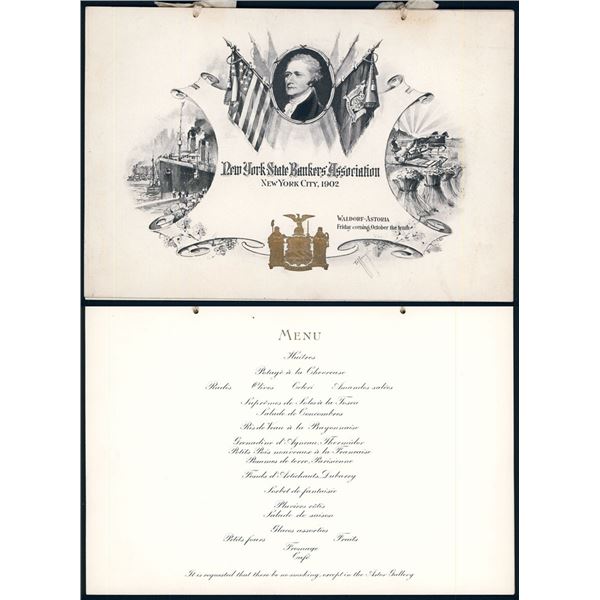 New York State Bankers' Association
New York City, 1902
Waldorf-Astoria
Friday evening, October the tenth
Menu
Huîtres
Potage à la Chevreuse
Radis Olives Céleri Amandes salées
Suprêmes de Soles à la Tosca
Salade de Concombres
Ris de Veau à la Bayonnaise
Grenadine d'Agneau, Thermidor
Petits Pois nouveaux à la Francaise
Pommes de terre, Parisienne
Fonds d'Artichauts, Dubarry
Sorbet de fantaisie
Pluviers rôtis
Salade de saison
Glaces assorties
Petits fours Fruits
Fromage
Café
It is requested that there be no smoking, except in the Astor Gallery